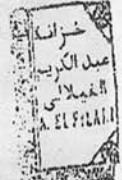 خزانة
عبد الكريم
الفيلالي
A. ELFILALI